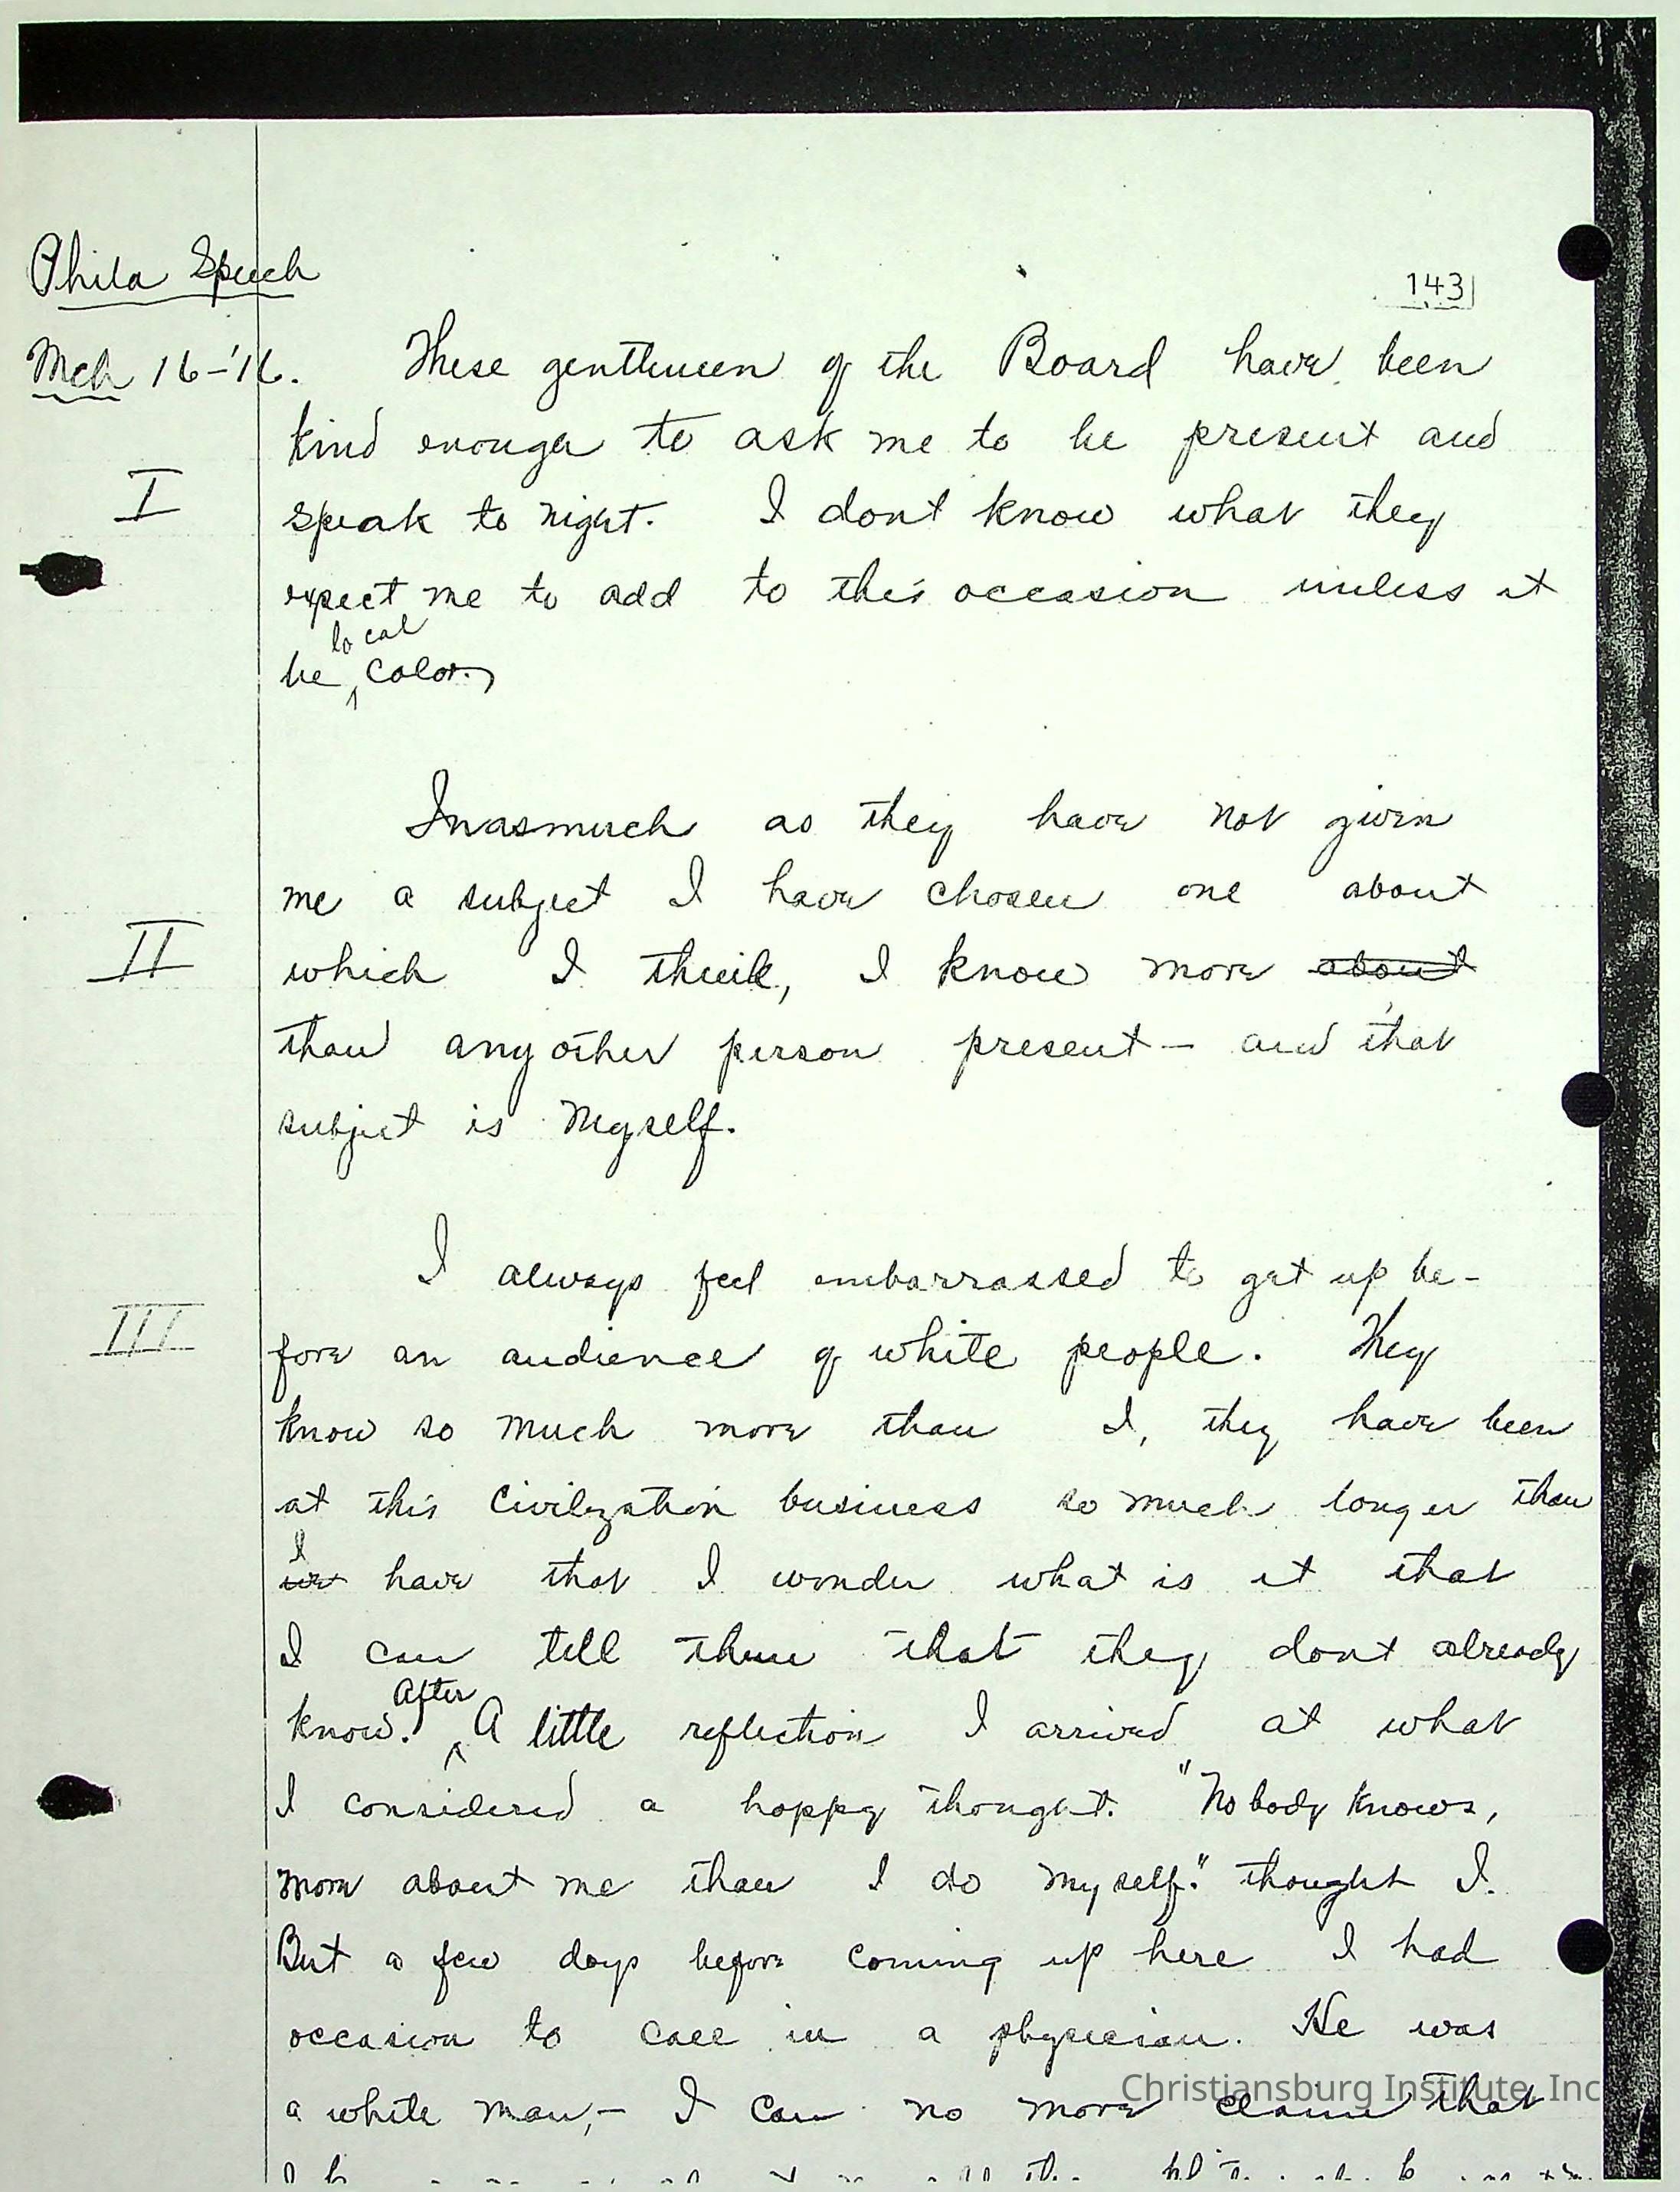 Phila Speech
143
Mch 16-'16. These gentlemen of the Board have been
kind enough to ask me to be present and
I
speak to night. I dont know what they
expect me to add to this occasion unless it
local
be color.
Inasmuch as they have not given
me a subject I have chosen one about
II
which I think, I know more about
than any other person present - and that
subject is Myself.
I always feel embarrassed to get up be-
III
fore an audience of white people. They
know so much more than I, they have been
at this civilization business so much longer than
I
we have that I wonder what is it that
I can tell them that they dont already
After
know. A little reflection I arrived at what
I considered a happy thought. "Nobody knows,
more about me than I do myself." thought I.
But a few days before coming up here I had
occasion to call in a physician. He was
a white man, - I can no more claim that
Christiansburg Institute, Inc